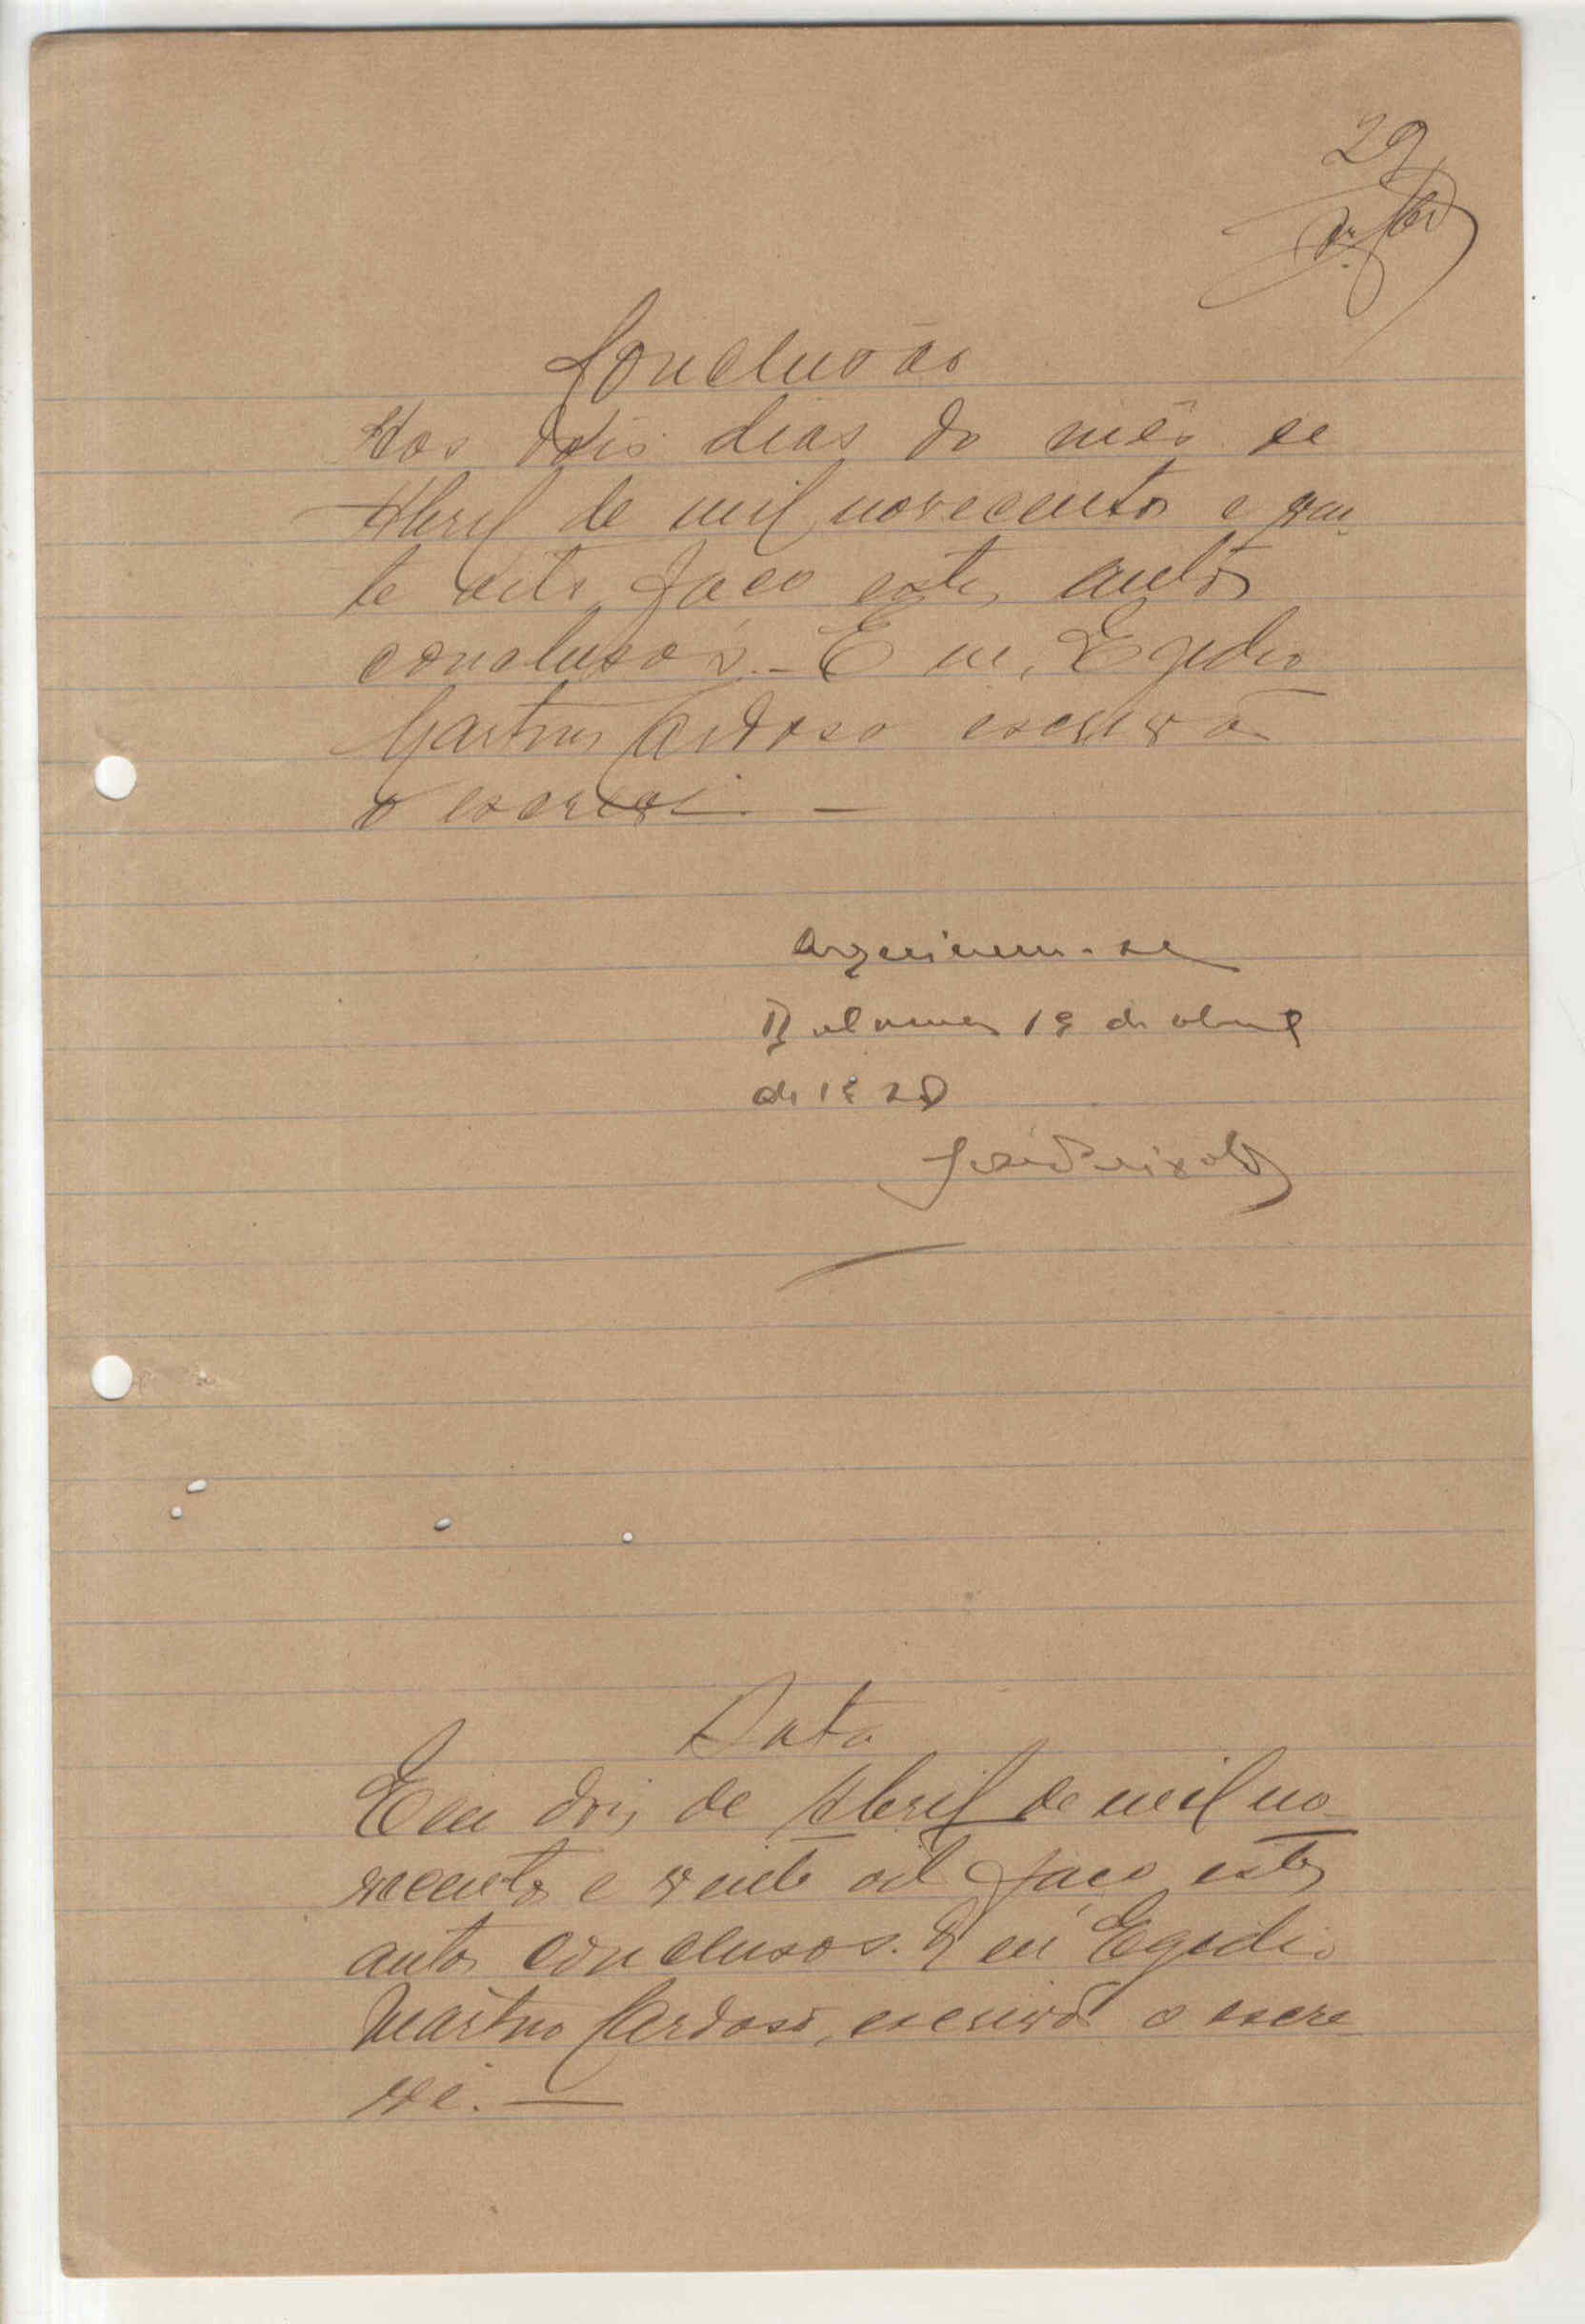 29
Conclusão
Aos dois dias do mês de
Abril de mil novecentos e vin-
te oito faço estes autos
conclusos. - E eu, Egidio
Martins Cardoso escrivão
o escrevi. —
Arquivem-se
de abril
de 1928
José Peixoto
Data
Em dois de Abril de mil no-
vecentos e vinte oito faço estes
autos conclusos. E eu Egidio
Martins Cardoso, escrivão o escre
vi. —